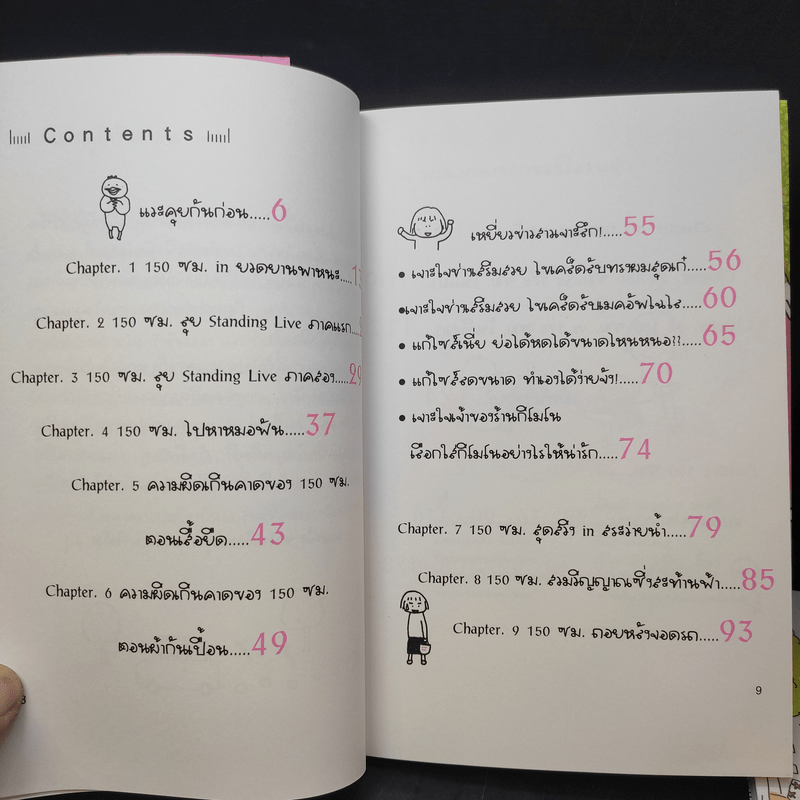 Contents
แวะคุยกันก่อน.....6
Chapter. 1 150 ซม. in ยวดยานพาหนะ.....1
Chapter. 2 150 ซม. ลุย Standing Live ภาคแรก....
Chapter. 3 150 ซม. ลุย Standing Live ภาคสอง.....29
Chapter. 4 150 ซม. ไปหาหมอฟัน.....37
Chapter. 5 ความผิดเกินคาดของ 150 ซม.
ตอนเสื้อยืด.....43
Chapter. 6 ความผิดเกินคาดของ 150 ซม.
ตอนผ้ากันเปื้อน.....49
8
เหยี่ยวข่าวสาวเจาะลึก!.....55
• เจาะใจซาลอนเสริมสวย ไขเคล็ดลับทรงผมสุดเก๋.....56
• เจาะใจซาลอนเสริมสวย ไขเคล็ดลับเมคอัพไฉไล.....60
• แก้ไซส์เนี่ย ย่อได้หดได้ขนาดไหนหนอ??.....65
• แก้ไซส์ลดขนาด ทำเองได้ง่ายจัง!.....70
• เจาะใจเจ้าของร้านกิโมโน
เลือกใส่กิโมโนอย่างไรให้น่ารัก.....74
Chapter. 7 150 ซม. สุดสวิง in สระว่ายน้ำ.....79
Chapter. 8 150 ซม. สวมวิญญาณซิ่งสะท้านฟ้า.....85
Chapter. 9 150 ซม. ถอยหลังจอดรถ.....93
9